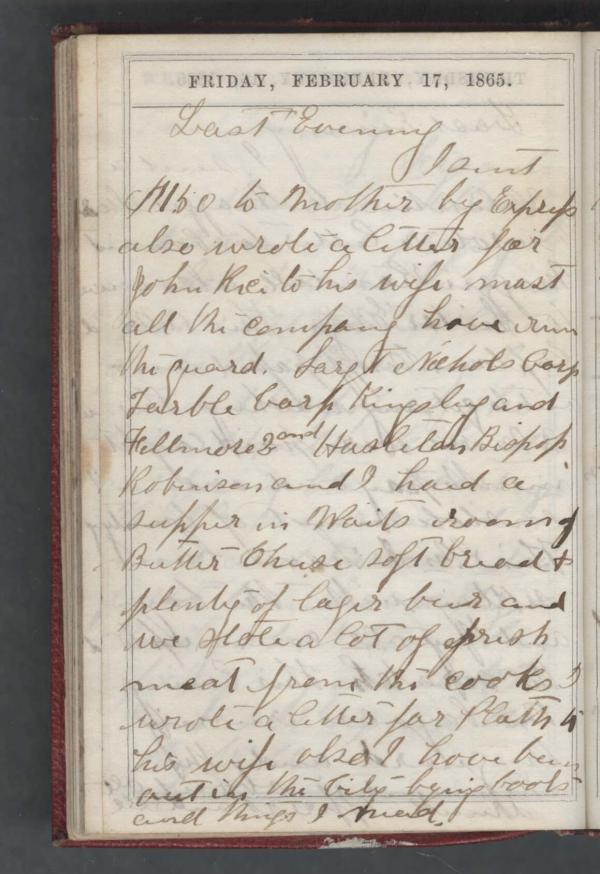 FRIDAY, FEBRUARY 17, 1865.
Last Evening
I sent
$150 to Mother by Express
also wrote a letter for
John Rice to his wife most
all the company have run
the guard. Sargt Nichols Corp
Tarble Corp Kingsley and
Fellmore 2nd Haseltan Bishop
Robinson and I had a
supper in Waits room of
Butter Cheese soft bread &
plenty of lager beer and
we stole a lot of fresh
meat from the cooks I
wrote a letter for Plath to
his wife also I have been
out in the City bying boots
and things I need.